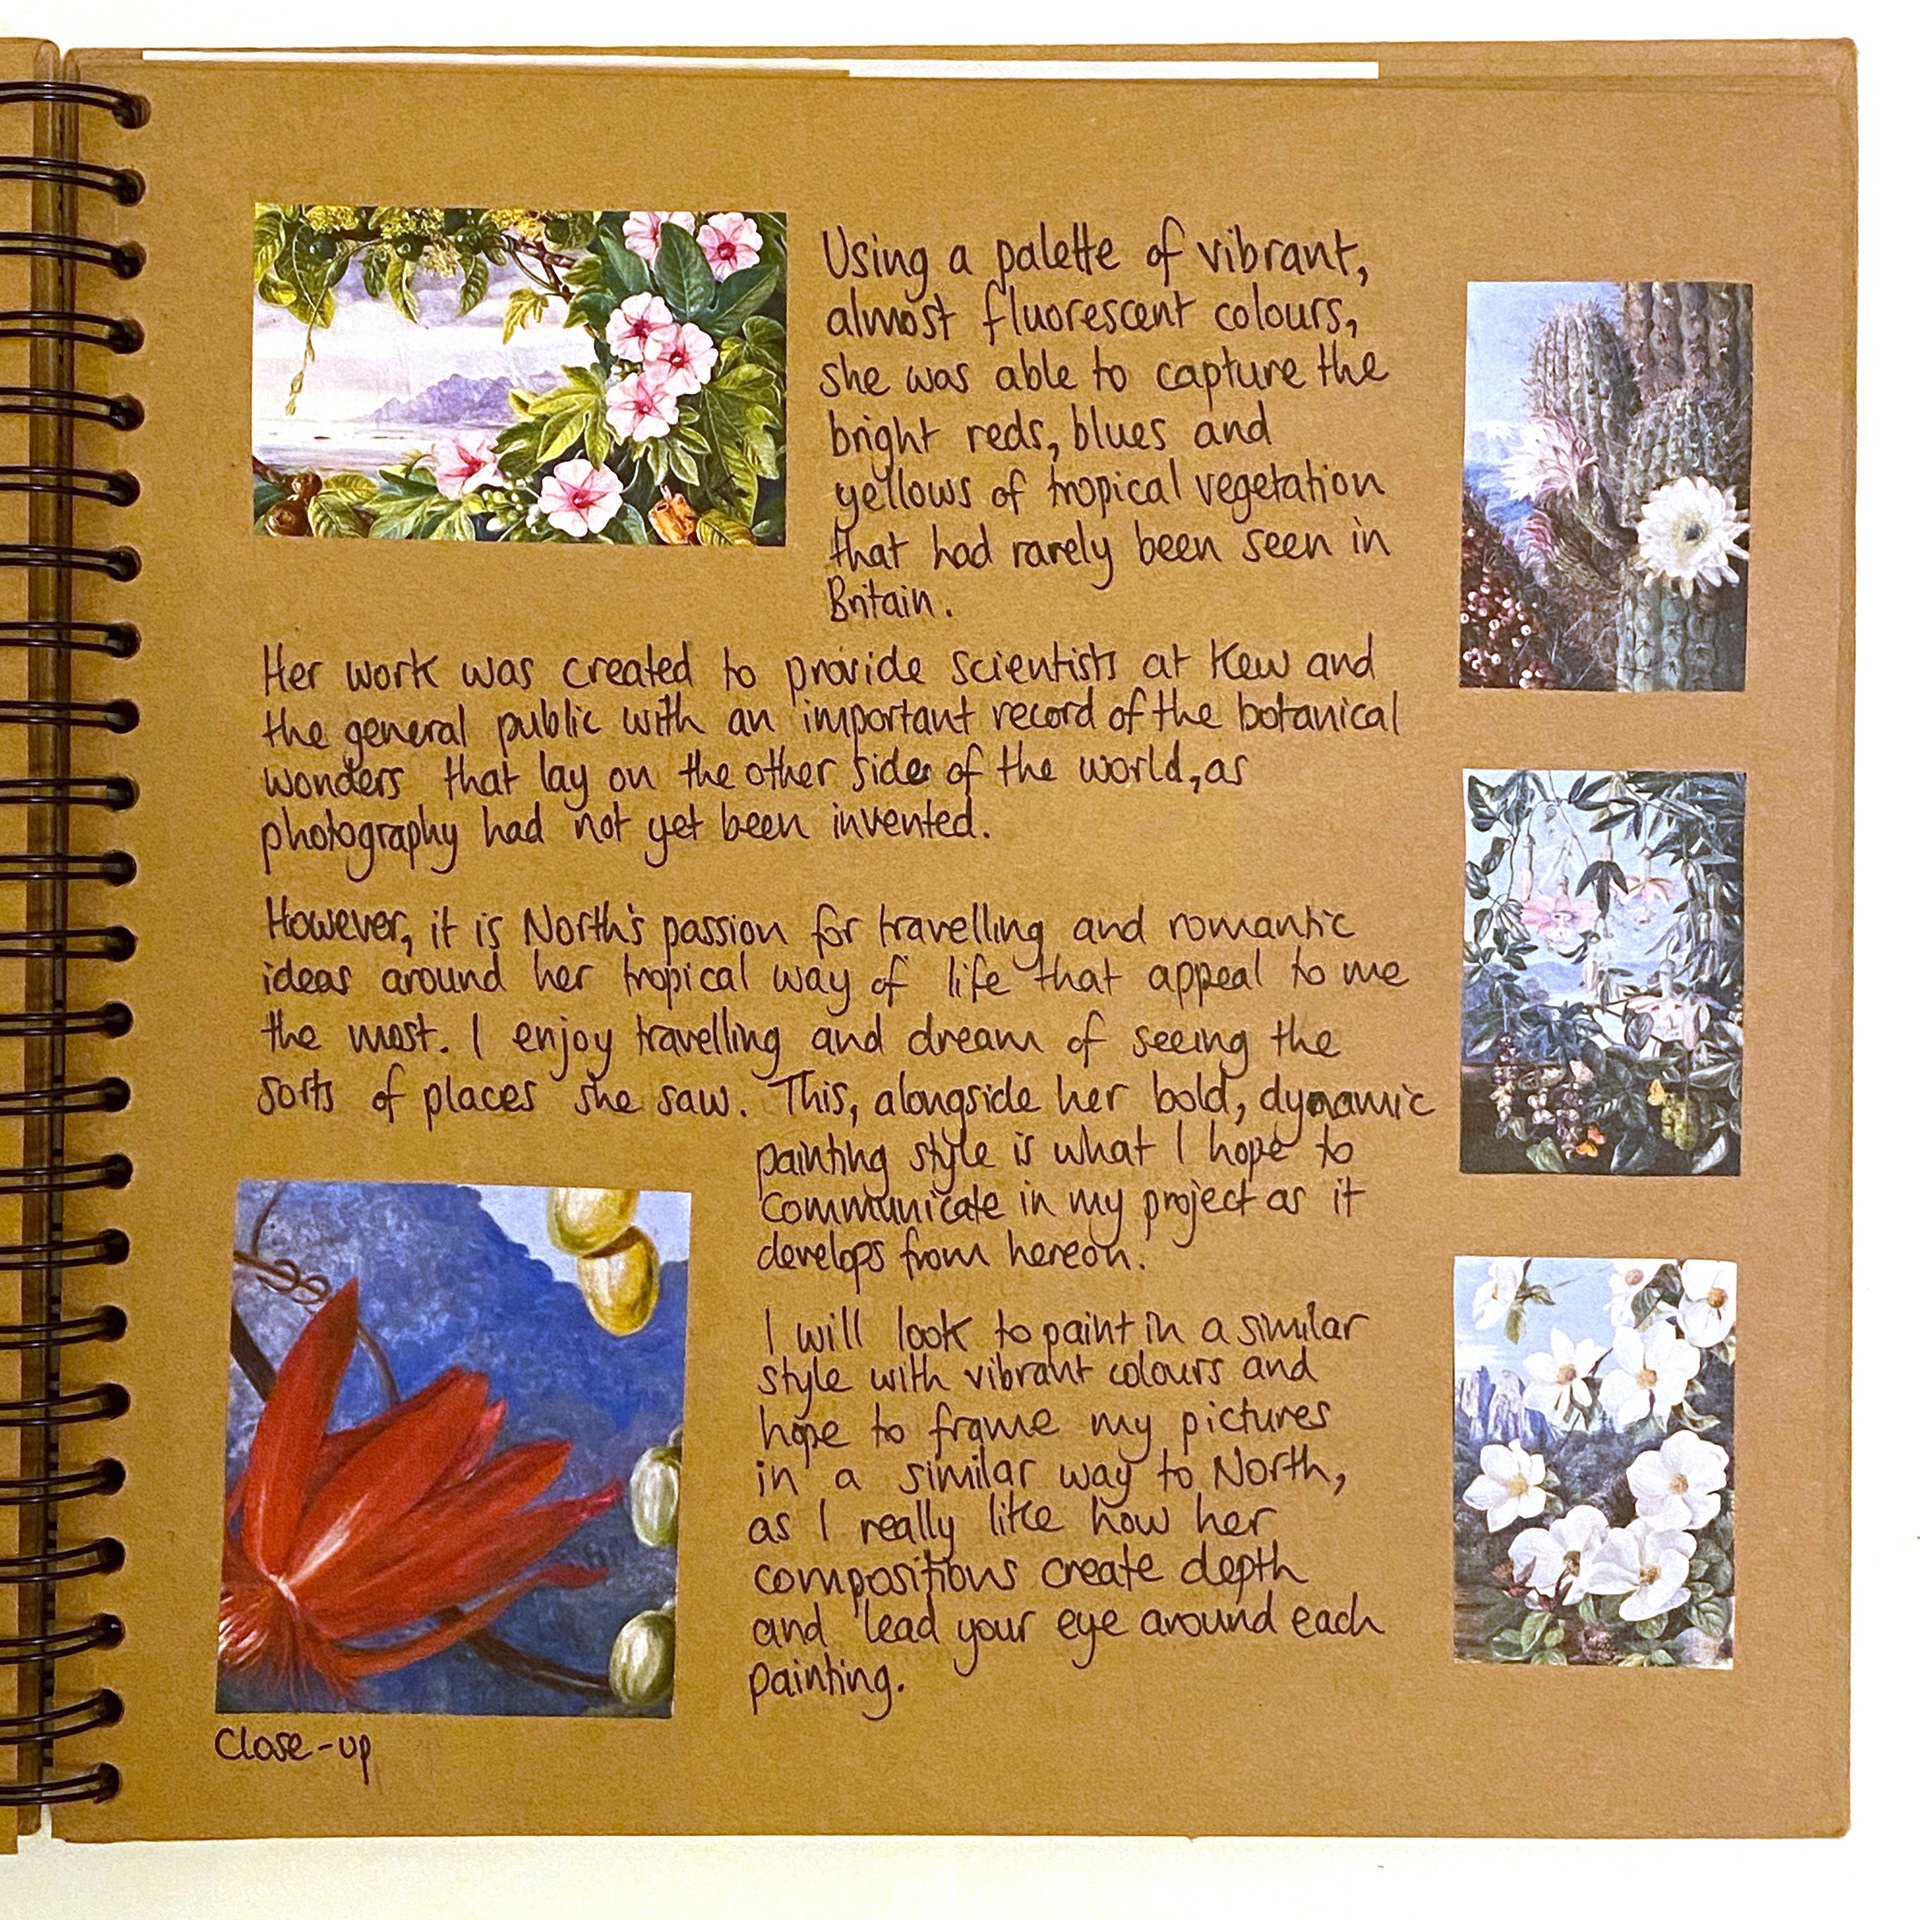 Using a palette of vibrant,
almost fluorescent colours,
she was able to capture the
bright reds, blues and
yellows of tropical vegetation
that had rarely been seen in
Britain.
Her work was created to provide scientists at Kew and
the general public with an important record of the botanical
wonders that lay on the other side of the world, as
photography had not yet been invented.
However, it is North's passion for travelling and romantic
ideas around her tropical way of life that appeal to me
the most. I enjoy travelling and dream of seeing the
sorts of places she saw. This, alongside her bold, dynamic
painting style is what I hope to
communicate in my project as it
develops from hereon.
I will look to paint in a similar
style with vibrant colours and
hope to frame my pictures
in a similar way to North,
as I really like how her
compositions create depth
and lead your eye around each
painting.
Close-up